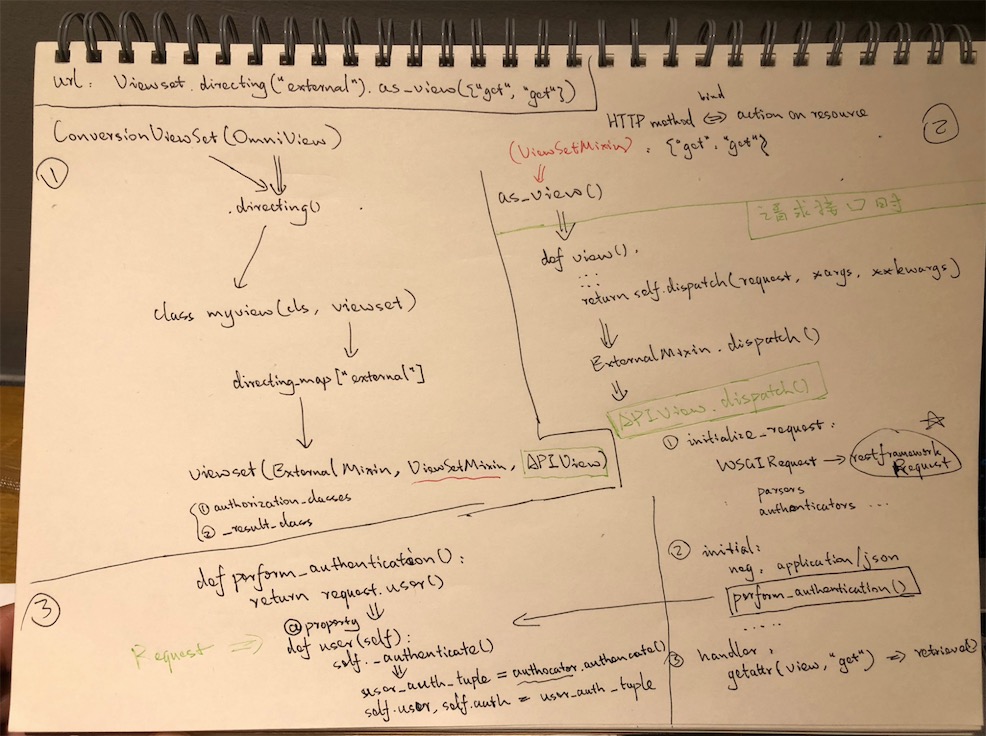 url: Viewset.directing("external").as_view({"get", "get"})
①
ConversionViewSet(OmniView)
.directing()
class myview(cls, viewset)
directing_map["external"]
viewset(ExternalMixin, ViewSetMixin, APIView)
① authorization_classes
② _result_class
②
bind
HTTP method ⇔ action on resource
(ViewSetMixin) . {"get", "get"}
as_view()
请求接口时
def view().
...
return self.dispatch(request, *args, **kwargs)
ExternalMixin.dispatch()
APIView.dispatch()
① initialize_request:
WSGIRequest → restframework Request
parsers
authenticators ...
② initial:
neg, application/json
prform_authentication()
.....
③ handler:
getattr(view, "get") ⇒ retrieve()
③
def prform_authentication():
return request.user()
@property
Request ⇒ def user(self):
self._authenticate()
user_auth_tuple = authocator.authencate()
self.user, self.auth = user_auth_tuple